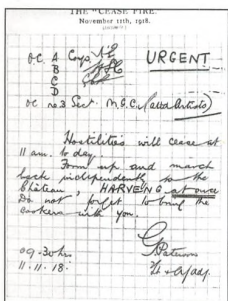 THE "CEASE FIRE."
November 11th, 1918.
O.C. A Coys.
B
C
D
URGENT
OC no 3 Sect. M.G.C. (attd Artists)
Hostilities will cease at
11 am. to day
Form up and march
back independently to the
Château, HARVENG at once
Do not forget to bring the
cookers with you.
09.30 hrs
11.11.18.
G Paterson
Lt & A/adj.